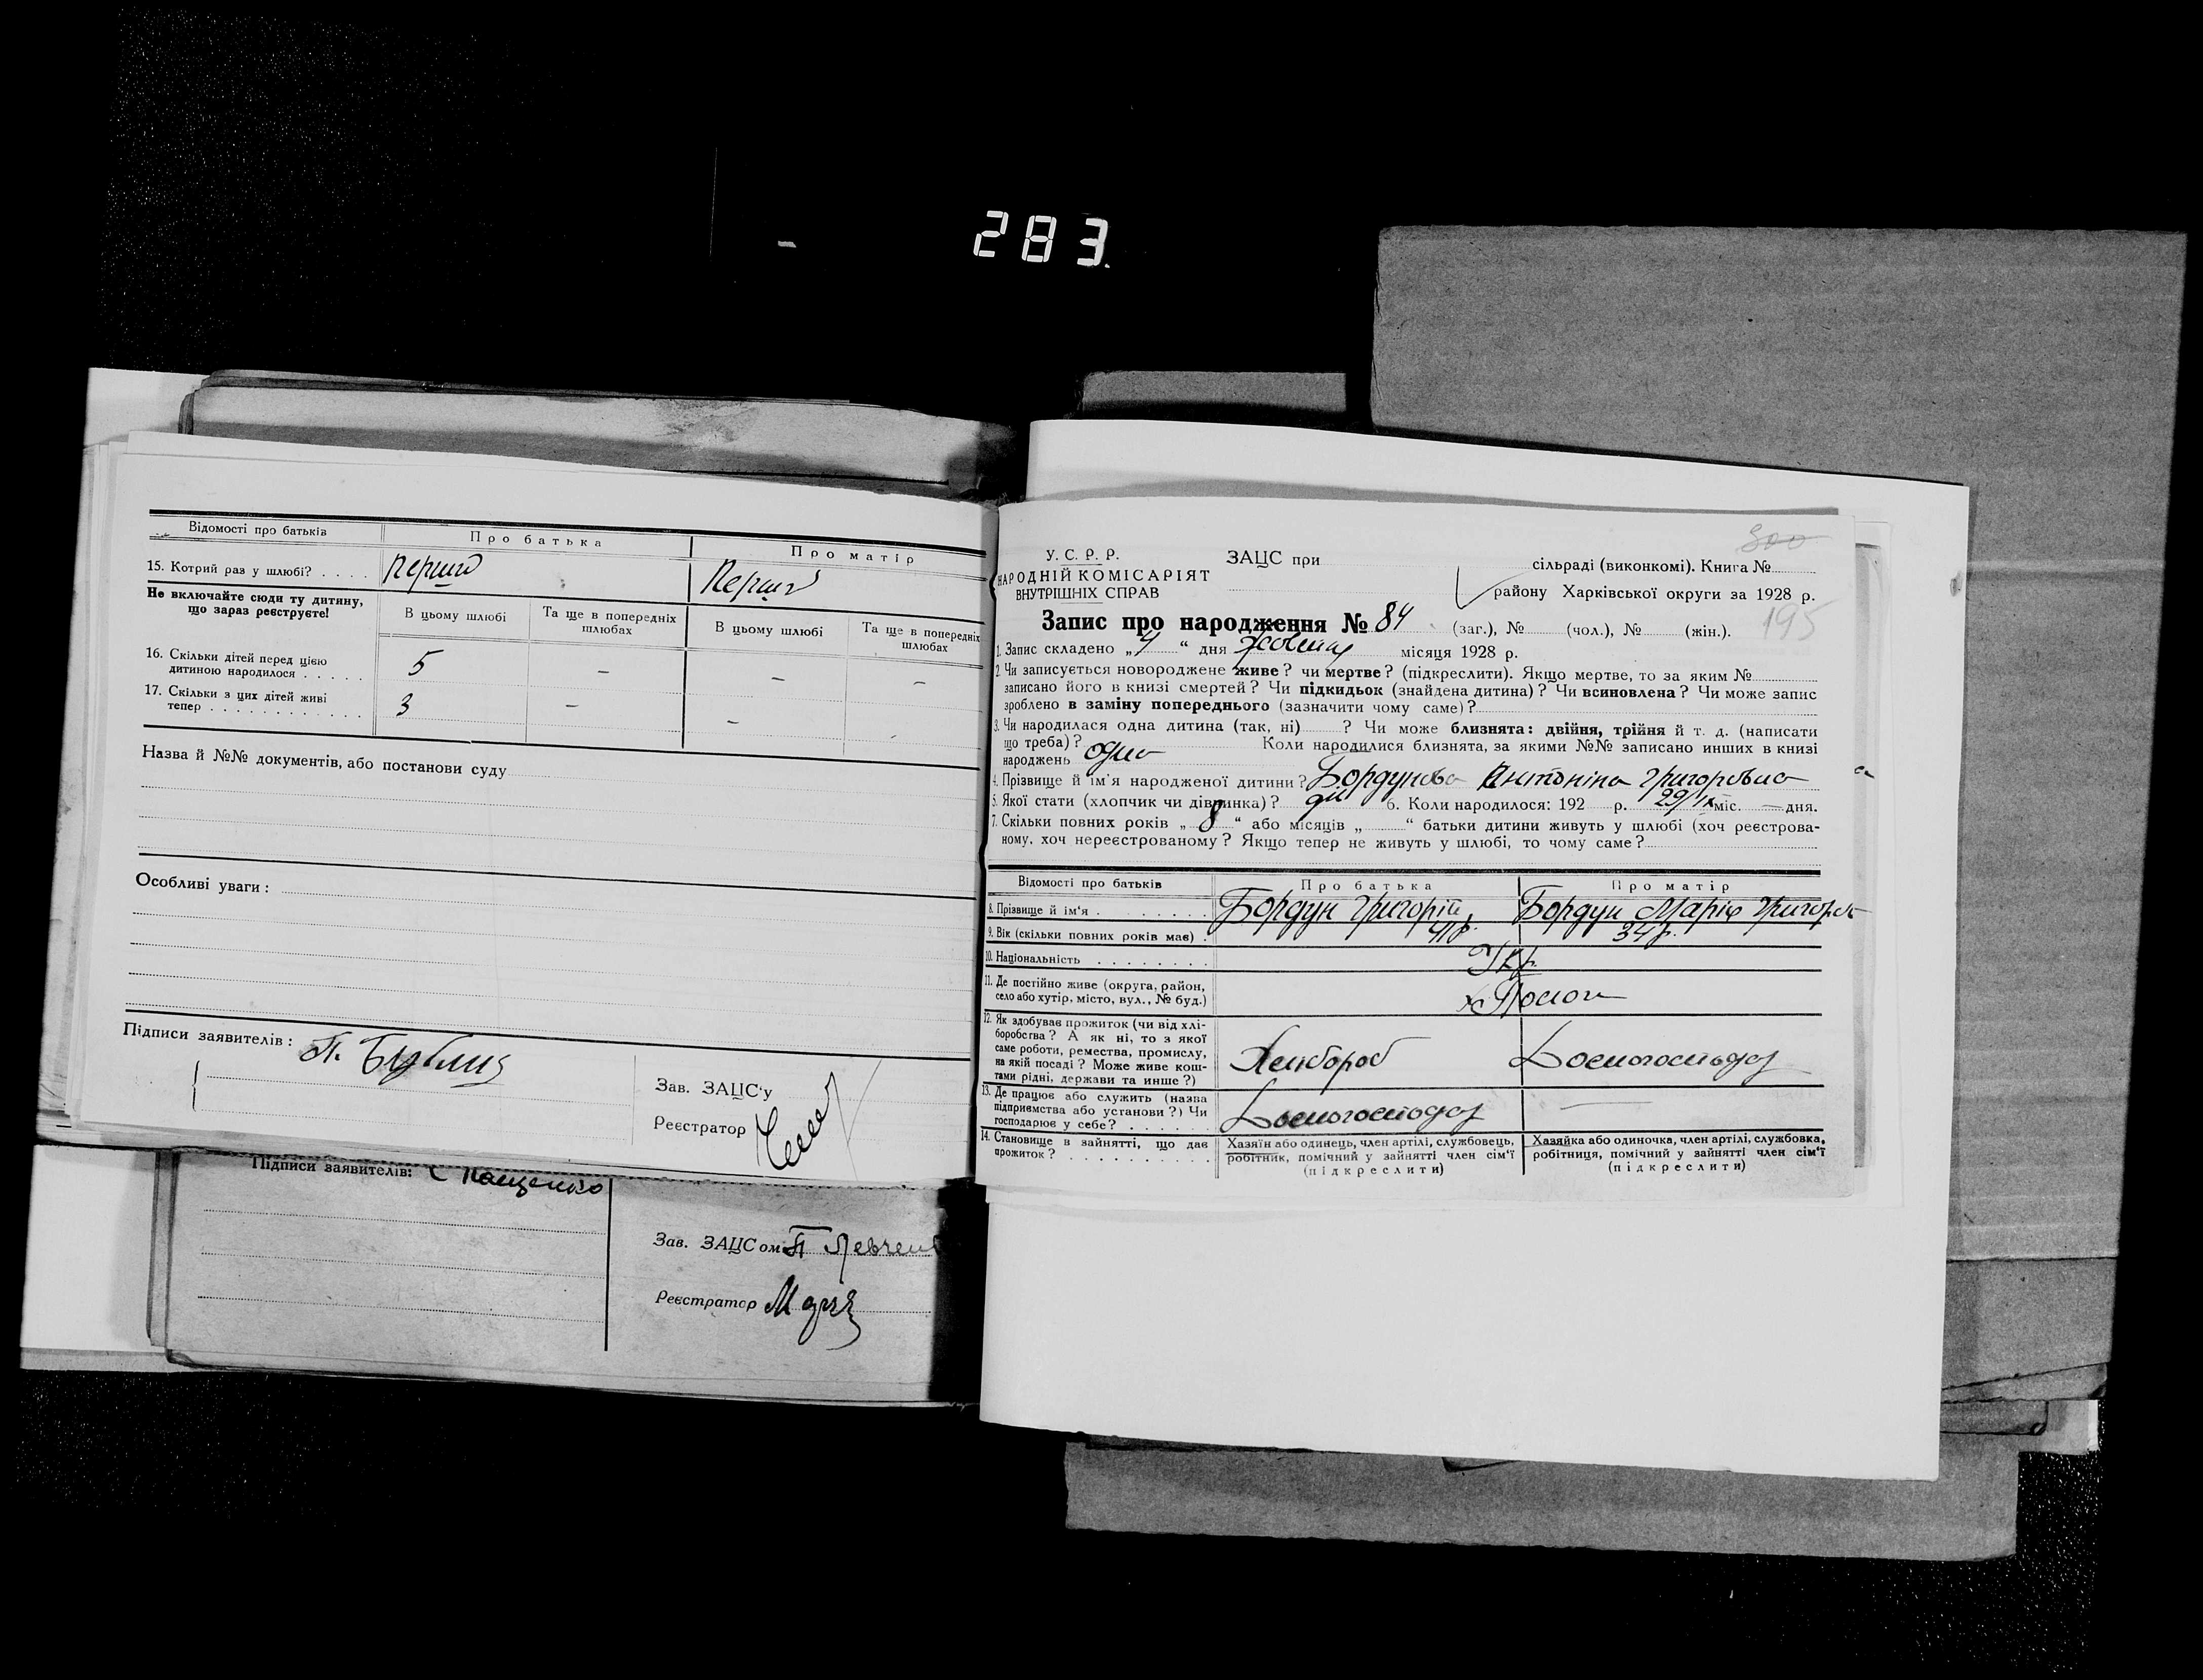 283.
Відомості про батьків
Про батька
Про матір
15. Котрий раз у шлюбі? . . . .
перший
Перший
Не включайте сюди ту дитину,
що зараз реєструєте!
В цьому шлюбі
Та ще в попередніх
шлюбах
В цьому шлюбі
Та ще в попередніх
шлюбах
16. Скільки дітей перед цією
дитиною народилося . . . . .
5
–
–
–
17. Скільки з цих дітей живі
тепер . . . . . . . . . . . .
3
–
–
Назва й №№ документів, або постанови суду
Особливі уваги:
Підписи заявителів:
Зав. ЗАЦС'у
Реєстратор
Підписи заявителів:
Пащенко
Зав. ЗАЦСом
Реєстратор
300
У. С. Р. Р.
НАРОДНІЙ КОМІСАРІЯТ
ВНУТРІШНІХ СПРАВ
ЗАЦС при
сільраді (виконкомі). Книга №
району Харківської округи за 1928 р.
195
Запис про народження № 84 (заг.), № (чол.), № (жін.).
1. Запис складено „4“ дня жовтня місяця 1928 р.
2. Чи записується новороджене живе? чи мертве? (підкреслити). Якщо мертве, то за яким №
записано його в книзі смертей? Чи підкидьок (знайдена дитина)? Чи всиновлена? Чи може запис
зроблено в заміну попереднього (зазначити чому саме)?
3. Чи народилася одна дитина (так, ні) ? Чи може близнята: двійня, трійня й т. д. (написати
що треба)? одна Коли народилися близнята, за якими №№ записано инших в книзі
народжень
4. Прізвище й ім'я народженої дитини? Бордунова Антоніна Григоровна
5. Якої стати (хлопчик чи дівчинка)? дів 6. Коли народилося: 192 р. 29/IX міс. — дня.
7. Скільки повних років „8“ або місяців „ “ батьки дитини живуть у шлюбі (хоч реєстрова-
ному, хоч нереєстрованому? Якщо тепер не живуть у шлюбі, то чому саме?
Відомості про батьків
Про батька
Про матір
8. Прізвище й ім'я . . . . . . . .
Бордун Григорій
Бордун Марія Григор
9. Вік (скільки повних років має) .
41 р.
34 р.
10. Національність . . . . . . . .
Укр.
11. Де постійно живе (округа, район,
село або хутір, місто, вул., № буд.)
12. Як здобуває прожиток (чи від хлі-
боробства? А як ні, то з якої
саме роботи, ремества, промислу,
на якій посаді? Може живе кош-
тами рідні, держави та инше?)
Хлібороб
13. Де працює або служить (назва
підприємства або установи?) Чи
господарює у себе? . . . . . .
14. Становище в зайнятті, що дає
прожиток? . . . . . . . . . .
Хазяїн або одинець, член артілі, службовець,
робітник, помічний у зайнятті член сім'ї
(підкреслити)
Хазяйка або одиночка, член артілі, службовка,
робітниця, помічний у зайнятті член сім'ї
(підкреслити)